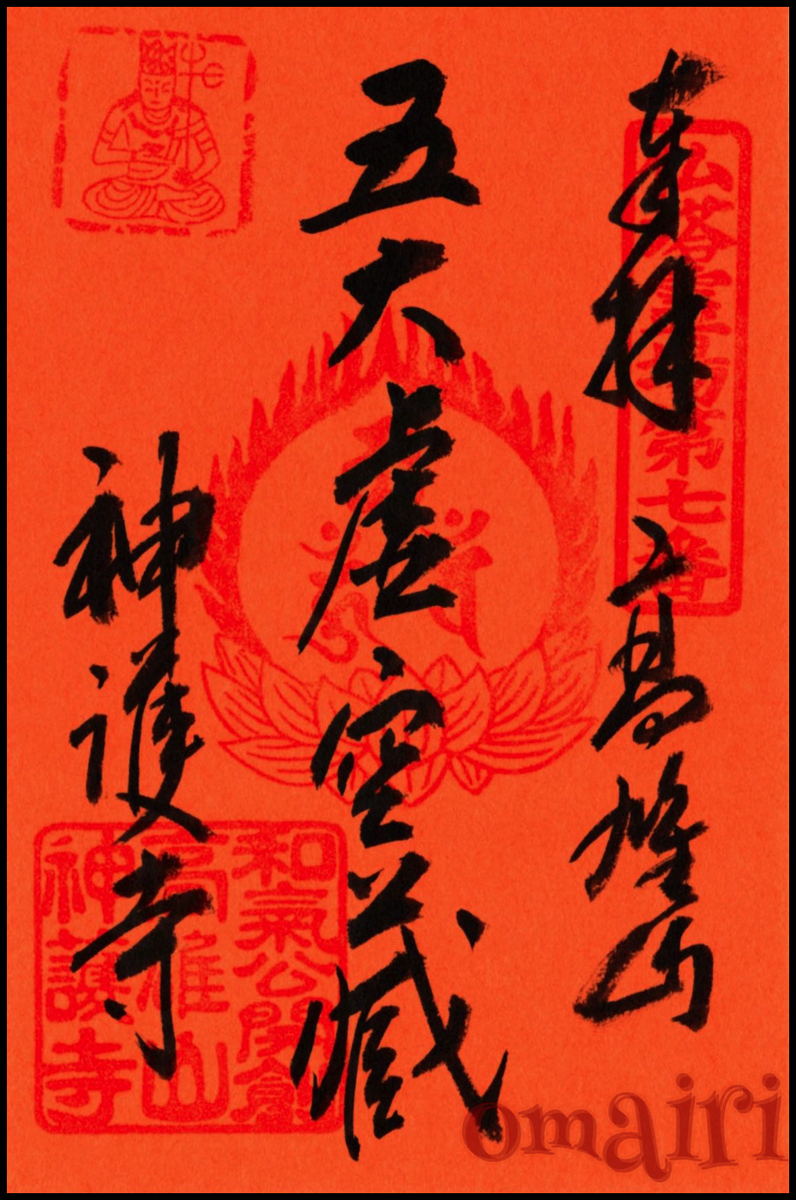 奉拝 高雄山
五大虚空蔵
神護寺
仏塔霊場第七番
和氣公開創
高雄山
神護寺
omairi